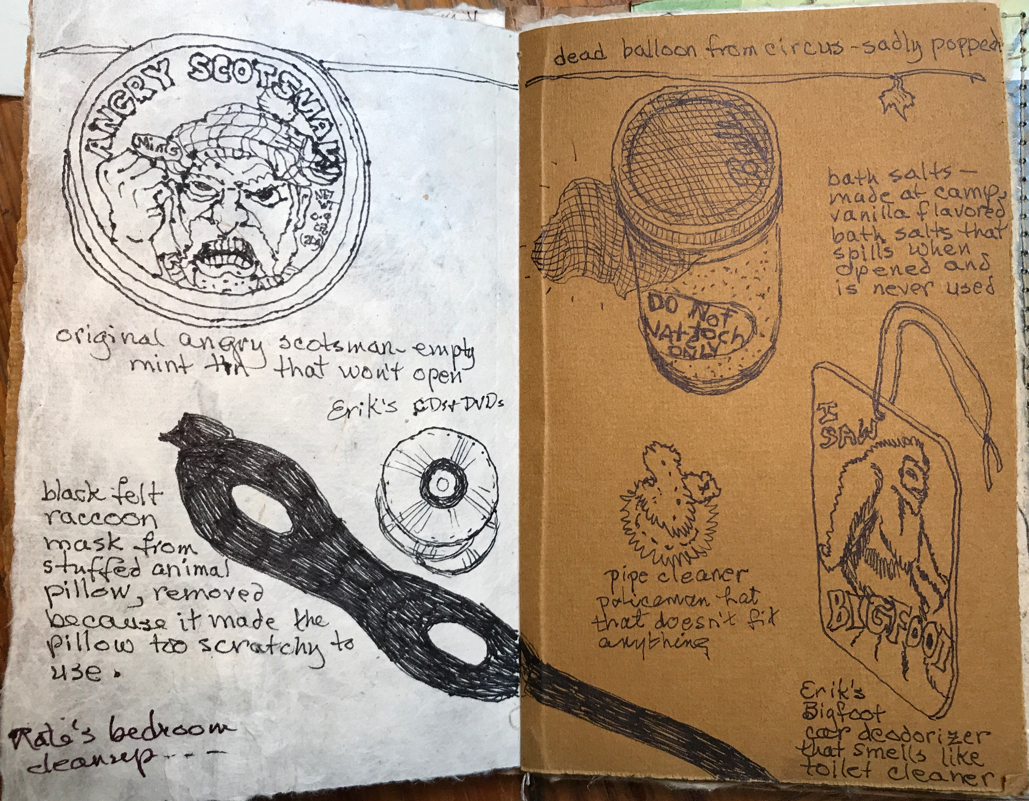 ANGRY SCOTSMAN
Mints
original angry scotsman-empty
mint tin that won't open
Erik's CDs+DVDs
black felt
raccoon
mask from
stuffed animal
pillow, removed
because it made the
pillow too scratchy to
use.
Kate's bedroom
cleanup---
dead balloon from circus-sadly popped
bath salts-
made at camp,
vanilla flavored
bath salts that
spills when
opened and
is never used
DO NOT
ONLY
I
SAW
BIGFOOT
pipe cleaner
policeman hat
that doesn't fit
anything
Erik's
Bigfoot
car deodorizer
that smells like
toilet cleaner